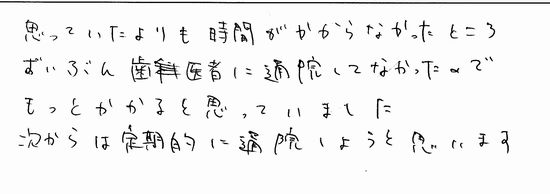 思っていたよりも時間がかからなかったところ
ずいぶん歯医者に通院してなかったので
もっとかかると思っていました
次からは定期的に通院しようと思います